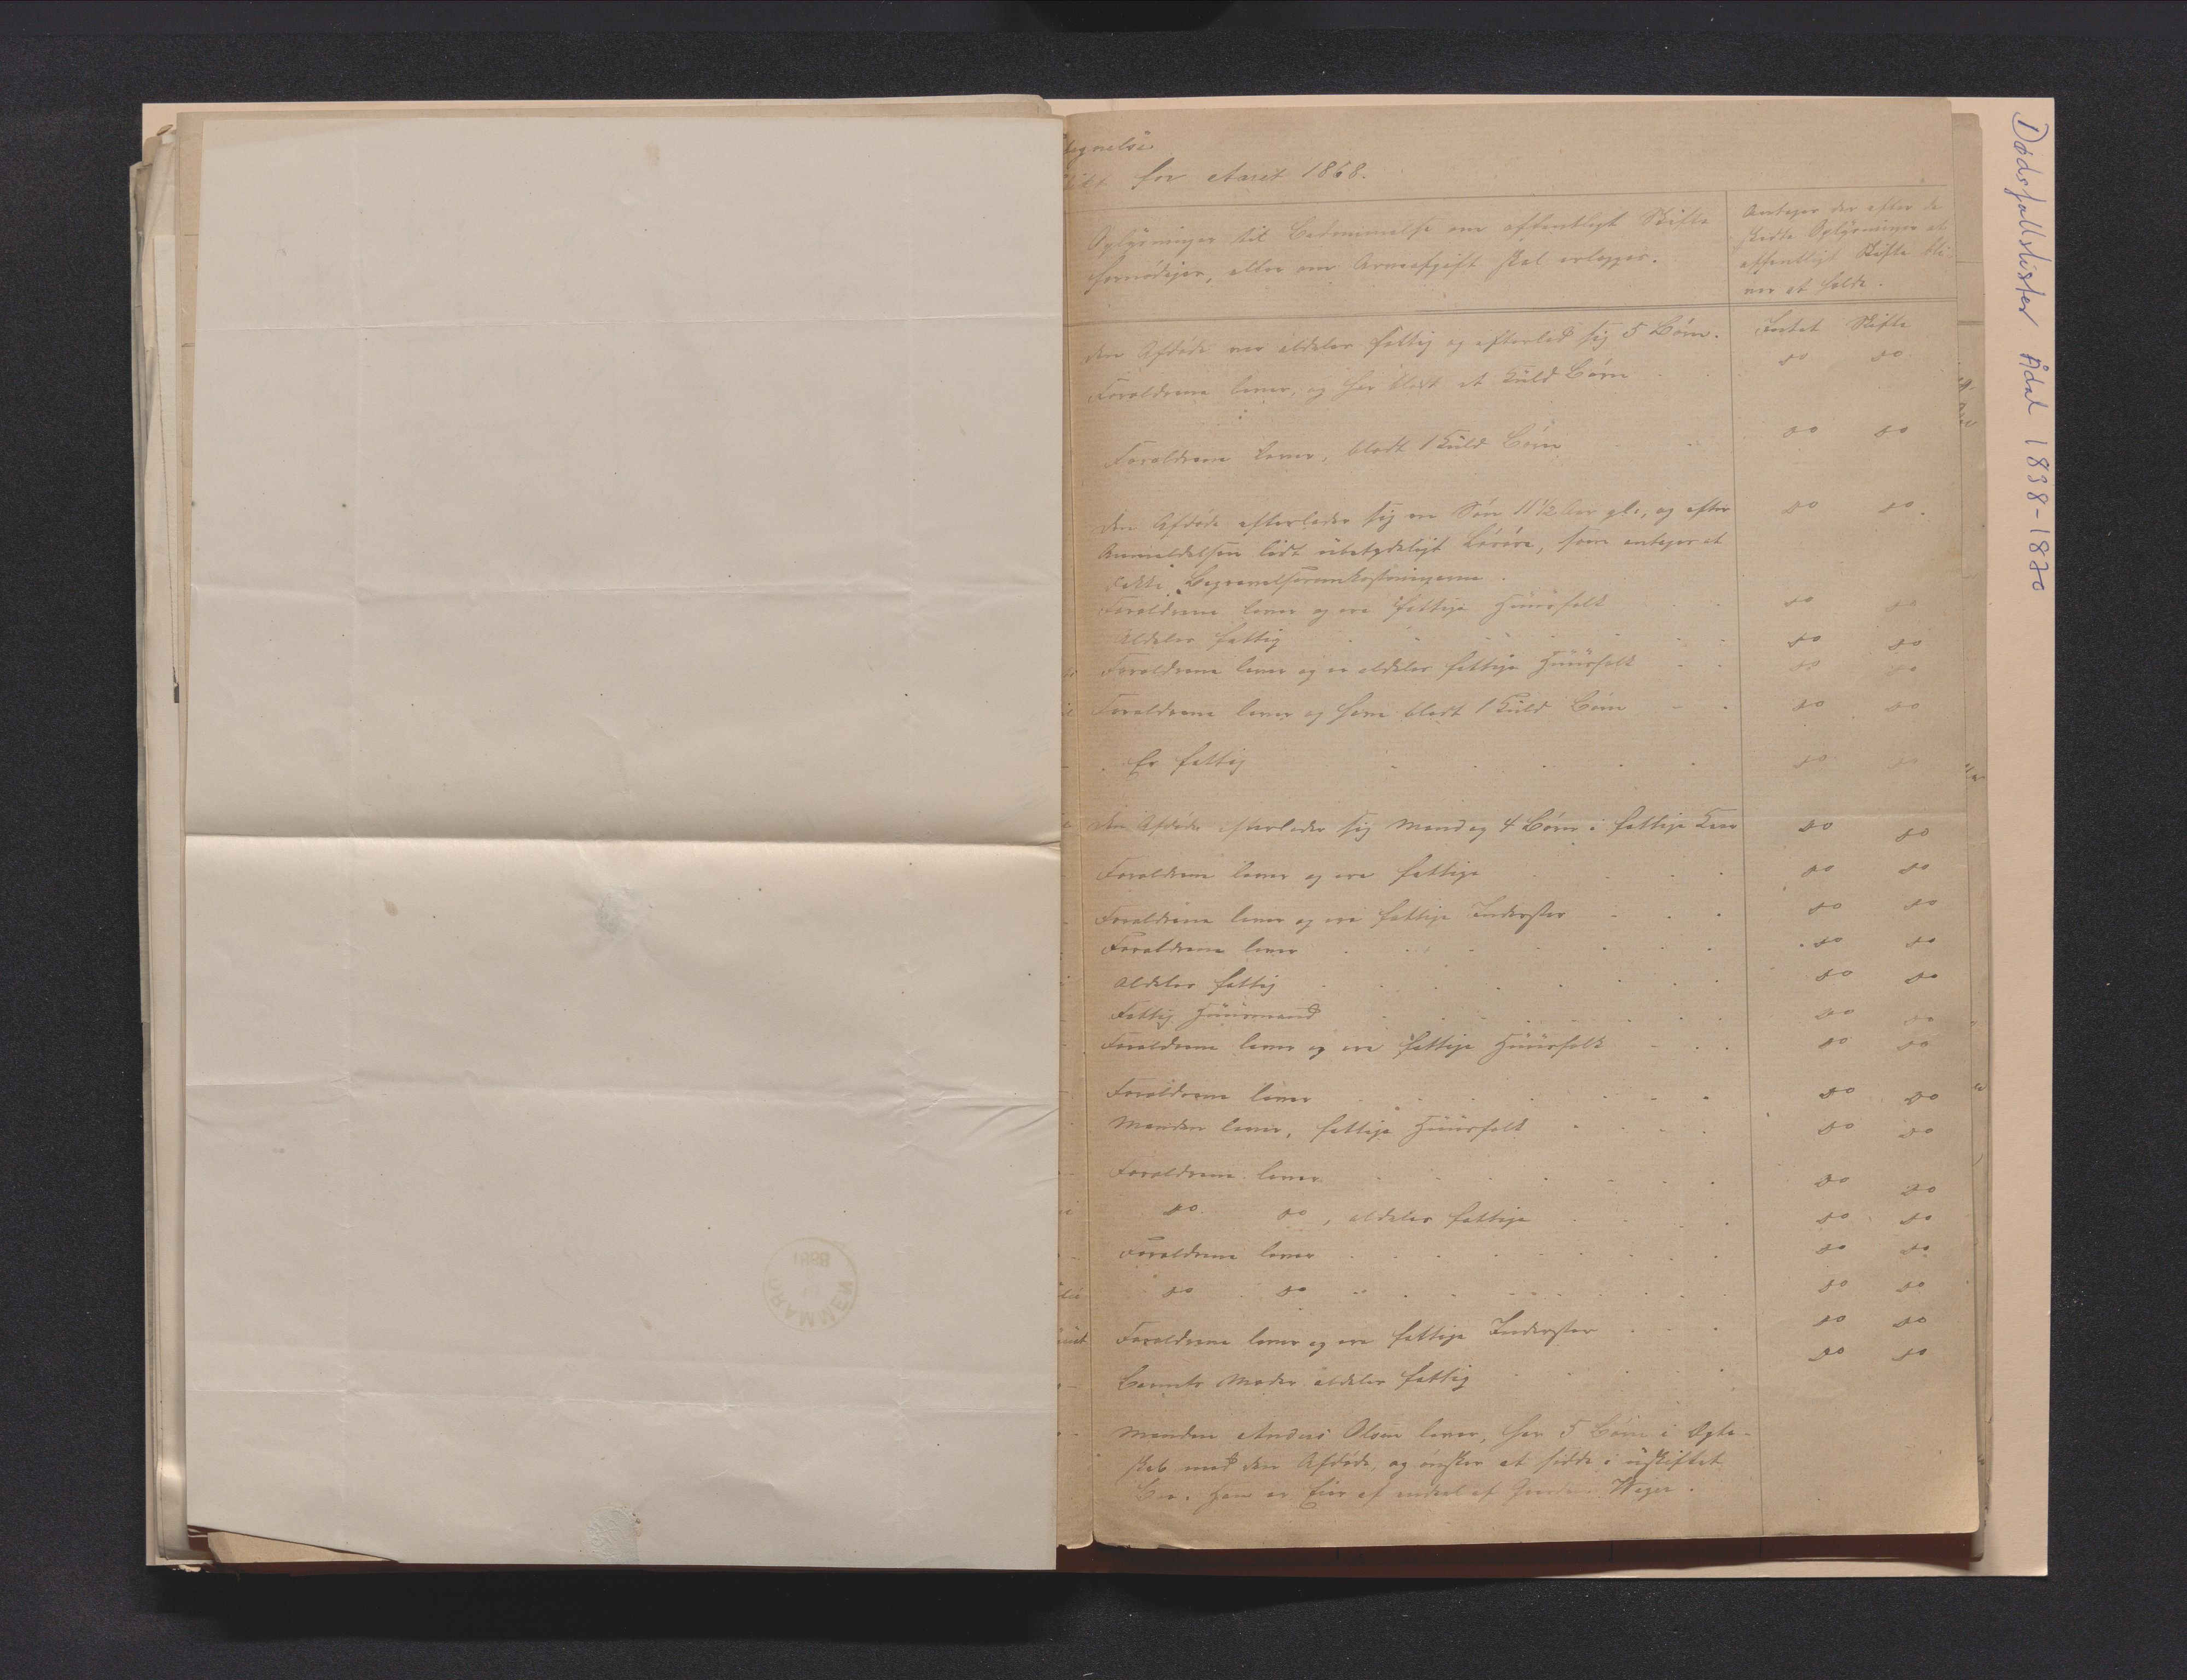 Dødsfallslister Ådal 1838-1870
for Aaret 1868.
Oplysninger til Bedømmelse om offentligt Skifte
fornødiges, eller om Arveafgift skal erlægges.
Antages der efter de
skedte Oplysninger at
offentligt Skifte bli-
ver at holde.
den Afdøde var aldeles fattig og efterlod sig 5 Børn. Intet Skifte
Forældrene lever, og har blodt et Kuld Børn do do
Forældrene lever, blodt 1 Kuld Børn do do
den Afdøde efterlader sig en Søn 11 1/2 Aar gl:, og efter do do.
Anmældelsen lidt ubetydeligt Løsøre, som antages at
dække Begravelsesomkostningerne.
Forældrene lever og ere fattige Huusfolk do do
Aldeles fattig do do
Forældrene lever og er aldeles fattige Huusfolk do do
Forældrene lever og have blodt 1 Kuld Børn do do
Er fattig do do
den Afdøde efterlader sig Mand og 4 Børn i fattige Kaar do do
Forældrene lever og ere fattige do do
Forældrene lever og ere fattige Inderster do do
Forældrene lever do do
Aldeles fattig do do
Fattig Huusmand do do
Forældrene lever og ere fattige Huusfolk do do
Forældrene lever do do
Manden lever, fattige Huusfolk do do
Forældrene lever do do
do do, aldeles fattige do do
Forældrene lever do do
do do do do
Forældrene lever og ere fattige Inderster do do
Barnets Moder aldeles fattig do do
Manden Anders Olsen lever, har 5 Børn i Ægte-
skab med den Afdøde, og ønsker at sidde i uskiftet
Bo. Han er Eier af endeel af Gaarden
DRAMMEN
1868